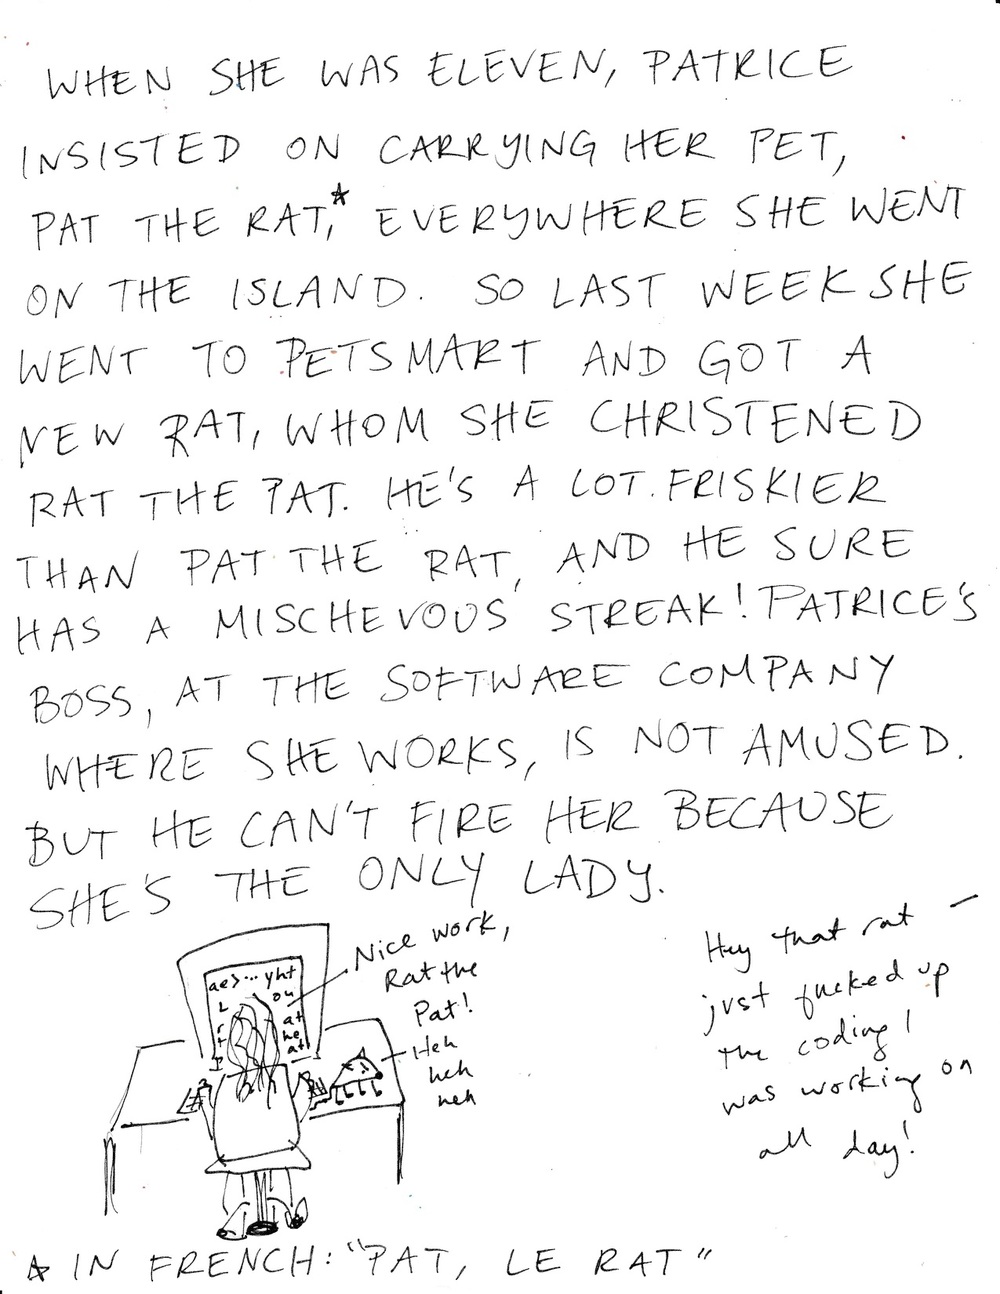 WHEN SHE WAS ELEVEN, PATRICE
INSISTED ON CARRYING HER PET,
PAT THE RAT,* EVERYWHERE SHE WENT
ON THE ISLAND. SO LAST WEEK SHE
WENT TO PETSMART AND GOT A
NEW RAT, WHOM SHE CHRISTENED
RAT THE PAT. HE'S A LOT FRISKIER
THAN PAT THE RAT, AND HE SURE
HAS A MISCHEVOUS STREAK! PATRICE'S
BOSS, AT THE SOFTWARE COMPANY
WHERE SHE WORKS, IS NOT AMUSED.
BUT HE CAN'T FIRE HER BECAUSE
SHE'S THE ONLY LADY.
Nice work,
Rat the
Pat!
Heh
heh
heh
Hey that rat –
just fucked up
the coding I
was working on
all day!
aes... yht
ou
at
he
at
* IN FRENCH: "PAT, LE RAT"